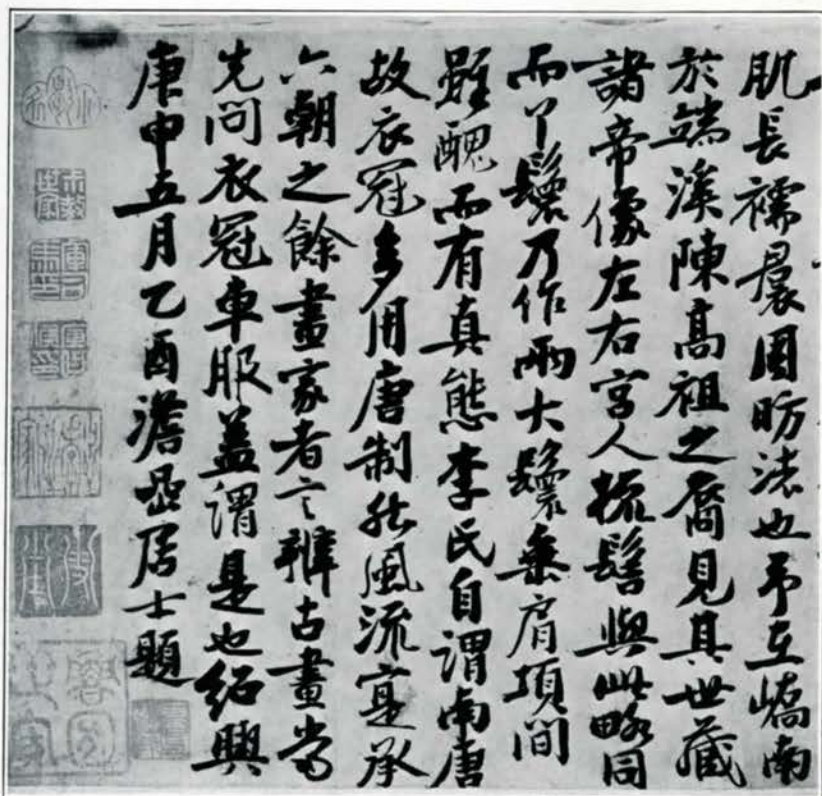 肌長襦裠周昉法也予在嶠南
於端溪陳高祖之裔見其世藏
諸帝像左右宮人梳髻與此略同
而丫鬟乃作兩大鬟垂肩項間
雖醜而有真態李氏自謂南唐
故衣冠多用唐制然風流寔承
六朝之餘畫家者言辨古畫當
先問衣冠車服蓋謂是也紹興
庚申五月乙酉澹喦居士題